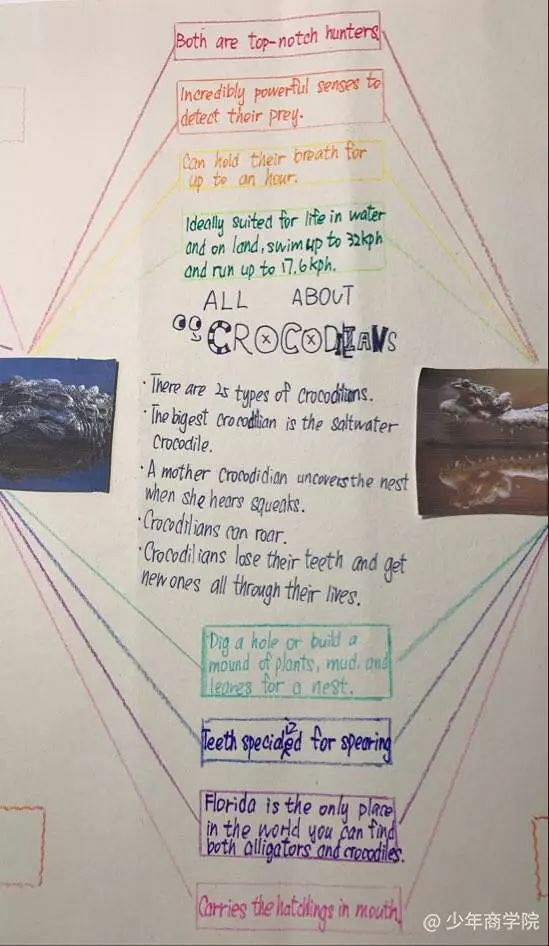 Both are top-notch hunters
Incredibly powerful senses to
detect their prey.
Can hold their breath for
up to an hour.
Ideally suited for life in water
and on land, swim up to 32kph
and run up to 17.6kph.
ALL ABOUT
CROCODILIANS
· There are 25 types of crocodilians.
· The bigest crocodilian is the saltwater
crocodile.
· A mother crocodidian uncovers the nest
when she hears squeaks.
· Crocodilians can roar.
· Crocodilians lose their teeth and get
new ones all through their lives.
Dig a hole or build a
mound of plants, mud, and
leaves for a nest.
Teeth specialized for spearing
Florida is the only place
in the world you can find
both alligators and crocodiles.
Carries the hatchlings in mouth
@ 少年商学院